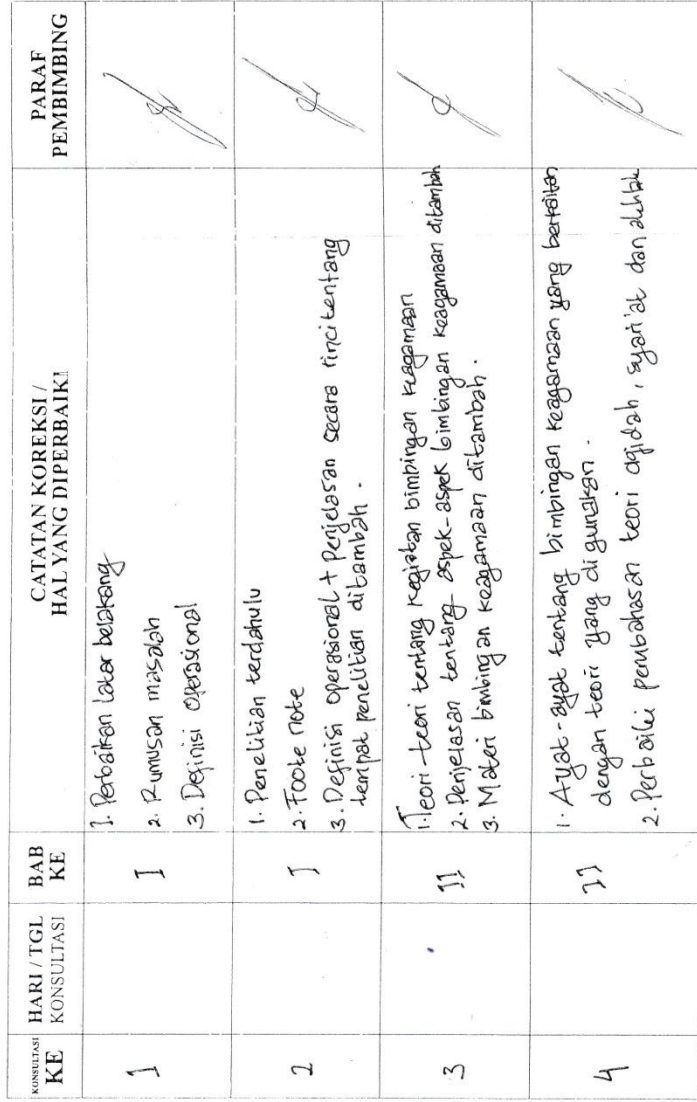 KONSULTASI
KE
HARI / TGL
KONSULTASI
BAB
KE
CATATAN KOREKSI /
HAL YANG DIPERBAIKI
PARAF
PEMBIMBING
1
I
1. Perbaikan latar belakang
2. Rumusan masalah
3. Definisi operasional
2
I
1. Penelitian terdahulu
2. Foote note
3. Definisi operasional + Penjelasan secara rinci tentang
tempat penelitian ditambah.
3
II
1. Teori-teori tentang kegiatan bimbingan keagamaan
2. Penjelasan tentang aspek-aspek bimbingan keagamaan ditambah
3. Materi bimbingan keagamaan ditambah.
4
II
1. Ayat-ayat tentang bimbingan keagamaan yang berkaitan
dengan teori yang digunakan.
2. Perbaiki pembahasan teori aqidah, syari'at dan akhlak